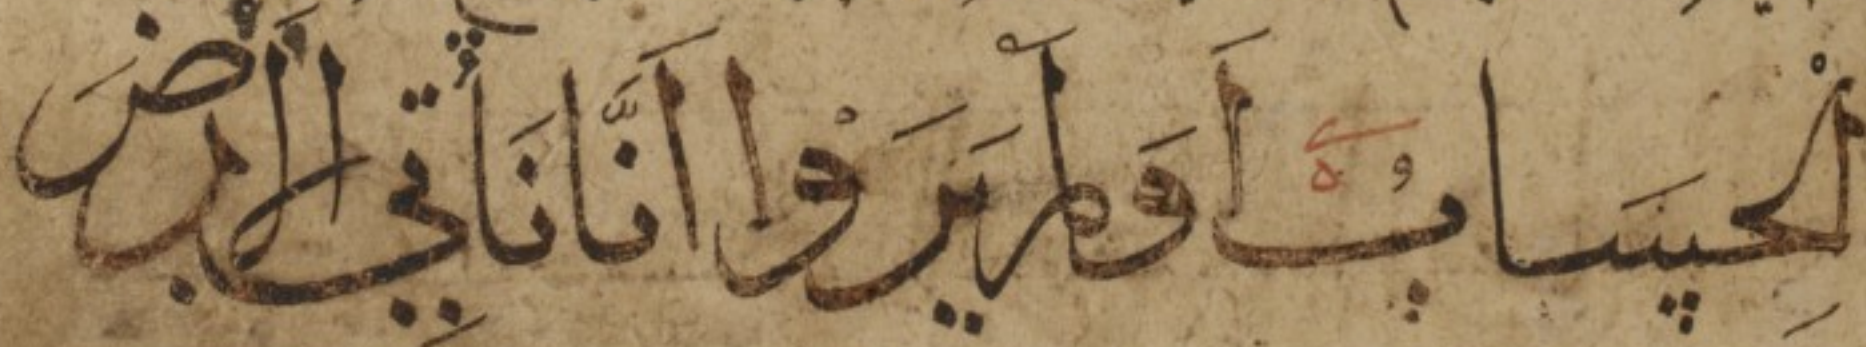 الْحِسَابُ أَوَلَمْ يَرَوْا أَنَّا نَأْتِي الْأَرْضَ